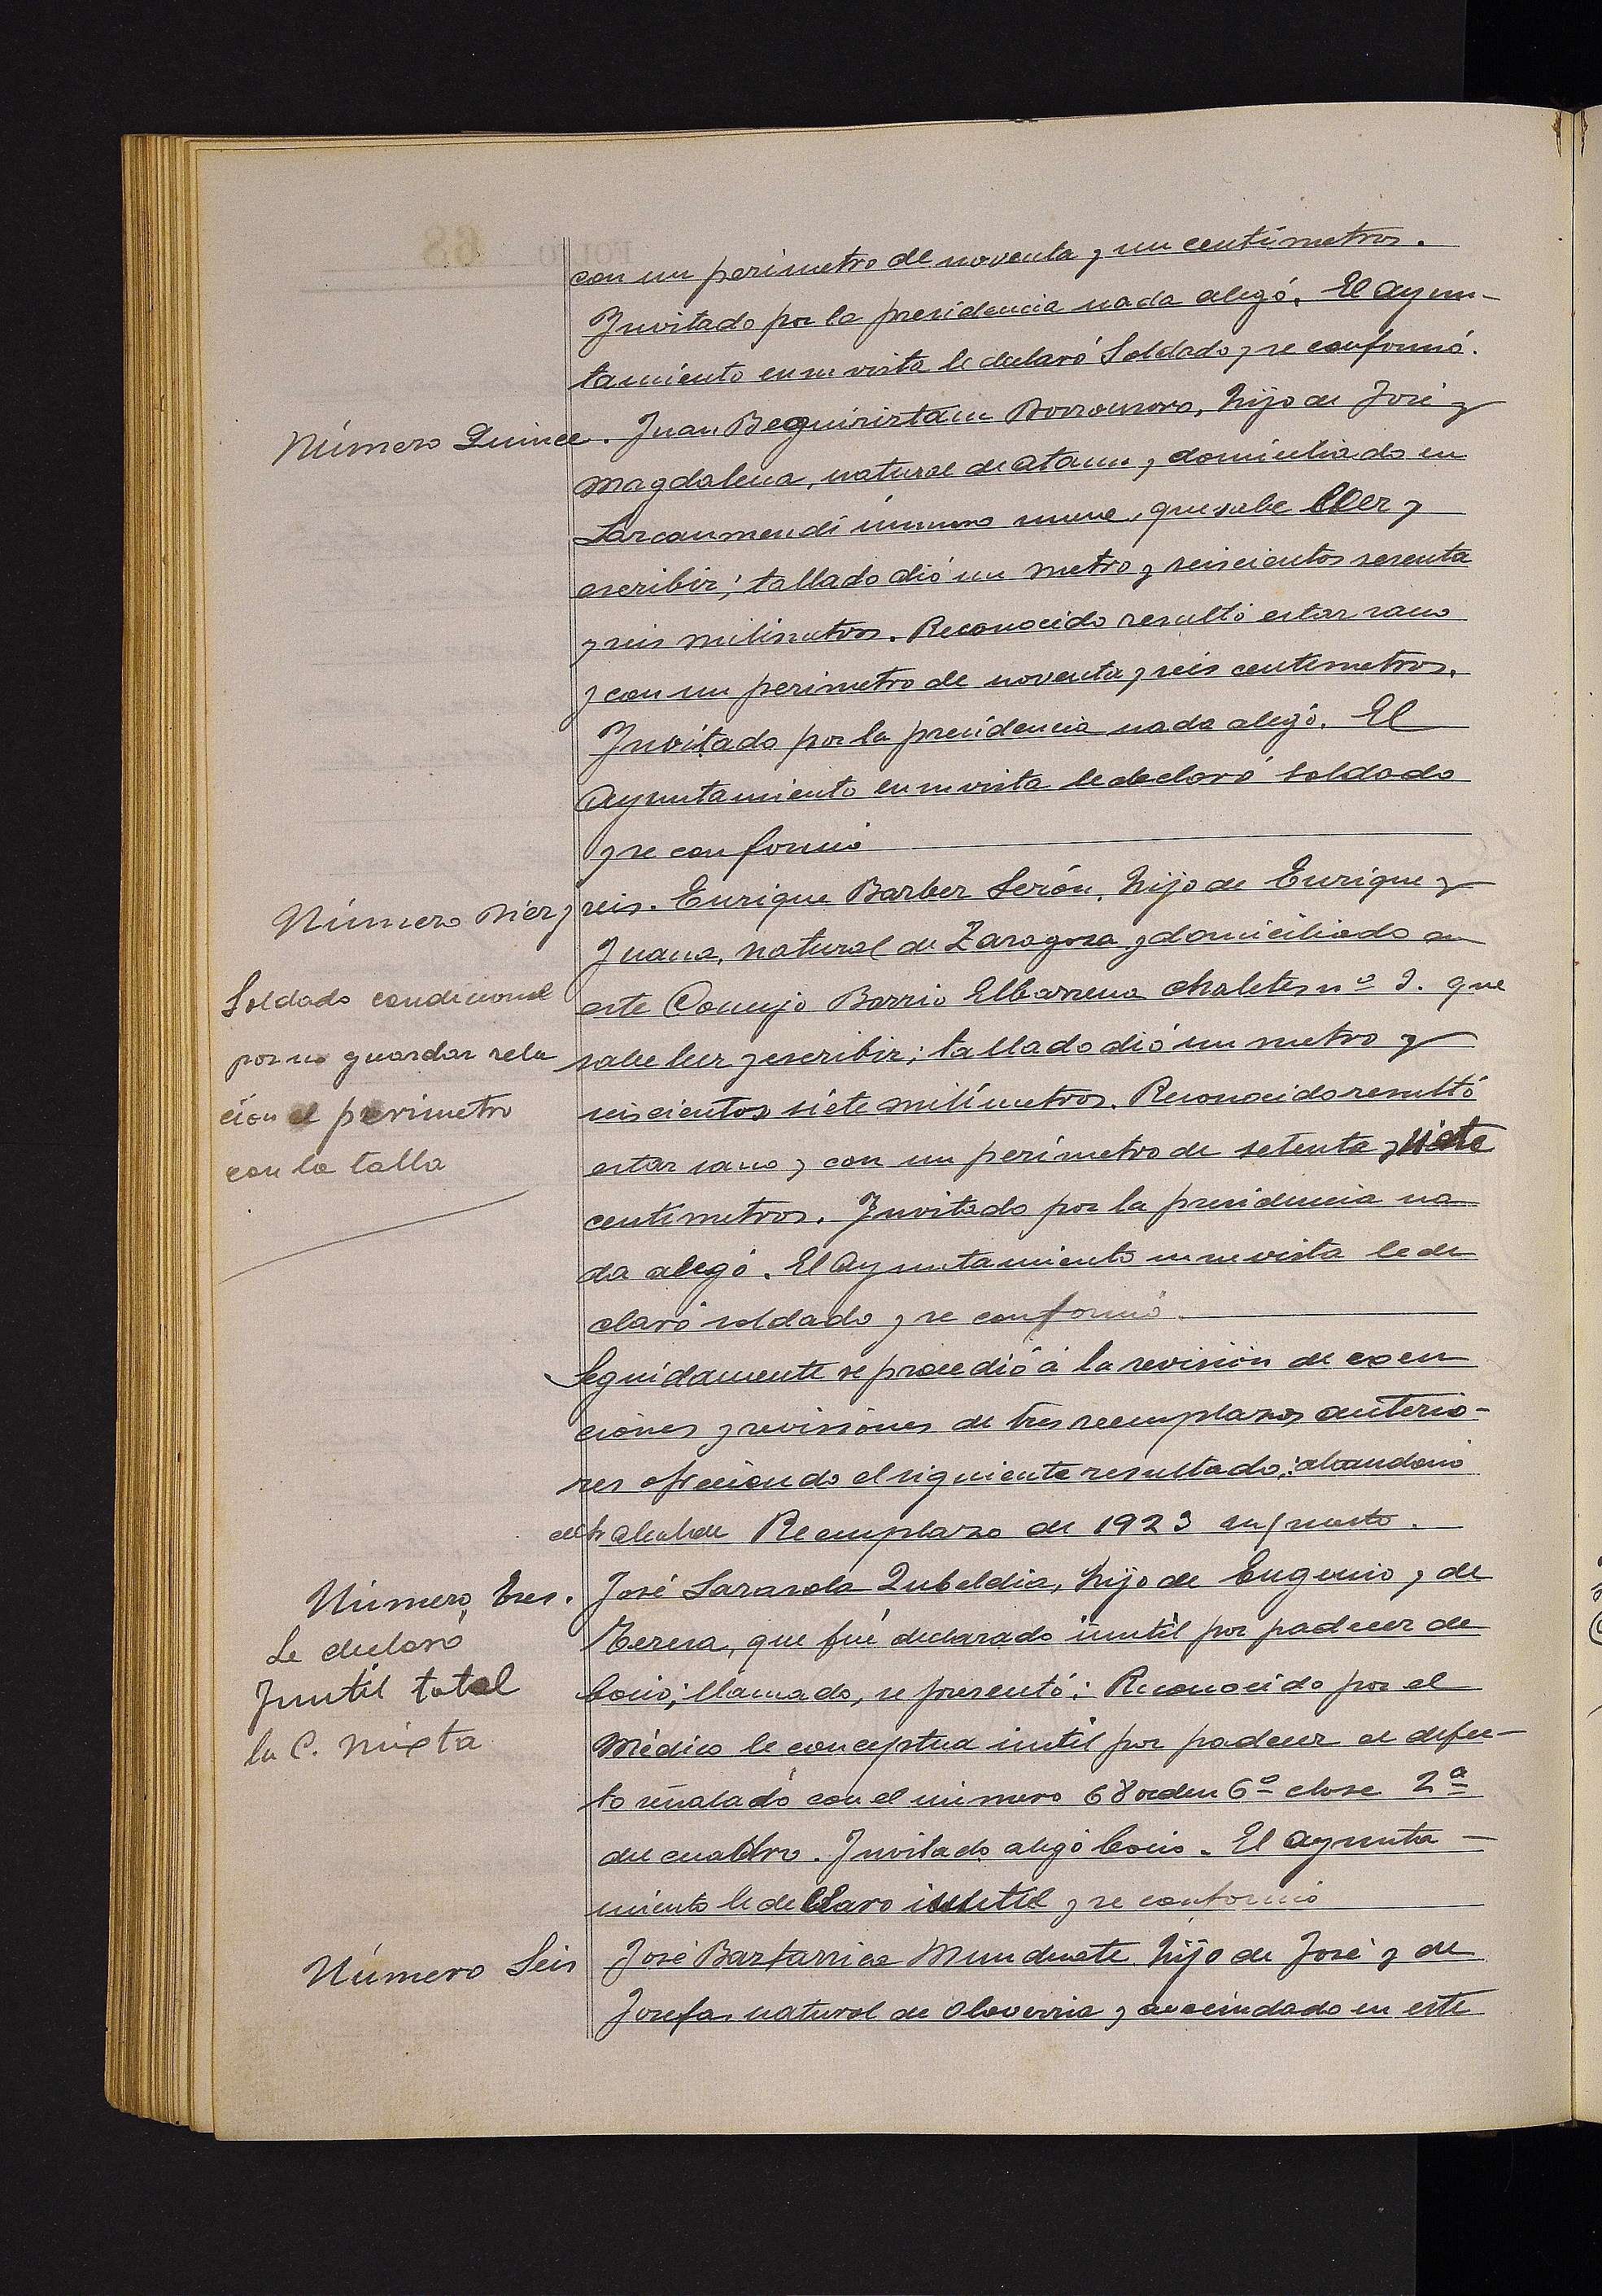 con un perimetro de noventa y un centímetros.
Invitado por la presidencia nada alegó. El Ayun-
tamiento en su vista le declaró Soldado y se conformó.
Número Quince. Juan Beguiristain, hijo de José y
Magdalena, natural de Ataun y domiciliado en
número nueve, que sabe leer y
escribir; tallado dió un metro y seiscientos sesenta
y seis milimetros. Reconocido resultó estar sano
y con un perimetro de noventa y seis centimetros.
Invitado por la presidencia nada alegó. El
Ayuntamiento en su vista le declaró soldado
y se conformó
Número Diez y seis. Enrique Barber Serón, hijo de Enrique y
Juana, natural de Zaragoza y domiciliado en
este Concejo Barrio Elbarrena chaletes nº 3. que
sabe leer y escribir; tallado dió un metro y
seiscientos siete milímetros. Reconocido resultó
estar sano y con un perímetro de setenta y siete
centímetros. Invitado por la presidencia na
da alegó. El Ayuntamiento en su vista le de
claró soldado y se conformó.
Soldado condicional
por no guardar rela
ción el perimetro
con la talla
Seguidamente se procedió á la revisión de exen
ciones y revisiones de tres reemplazos anterio-
res ofreciendo el siguiente resultado: abandonó
el Sr Alcalde Reemplazo de 1923 su puesto.
Número Tres. José Sarasola Zubeldia, hijo de Eugenio y de
Teresa, que fué declarado inutil por padecer de
bocio; llamado, se presentó: Reconocido por el
Médico le conceptua inutil por padecer el defec-
to señalado con el número 68 orden 6º clase 2ª
del cuadro. Invitado alegó bocio. El Ayunta-
miento le declaro inutil y se conformó
Le declaró
Inutil total
la C. Mixta
Número Seis José Bastarrica Munduate hijo de José y de
Josefa, natural de Olaverria y avecindado en este